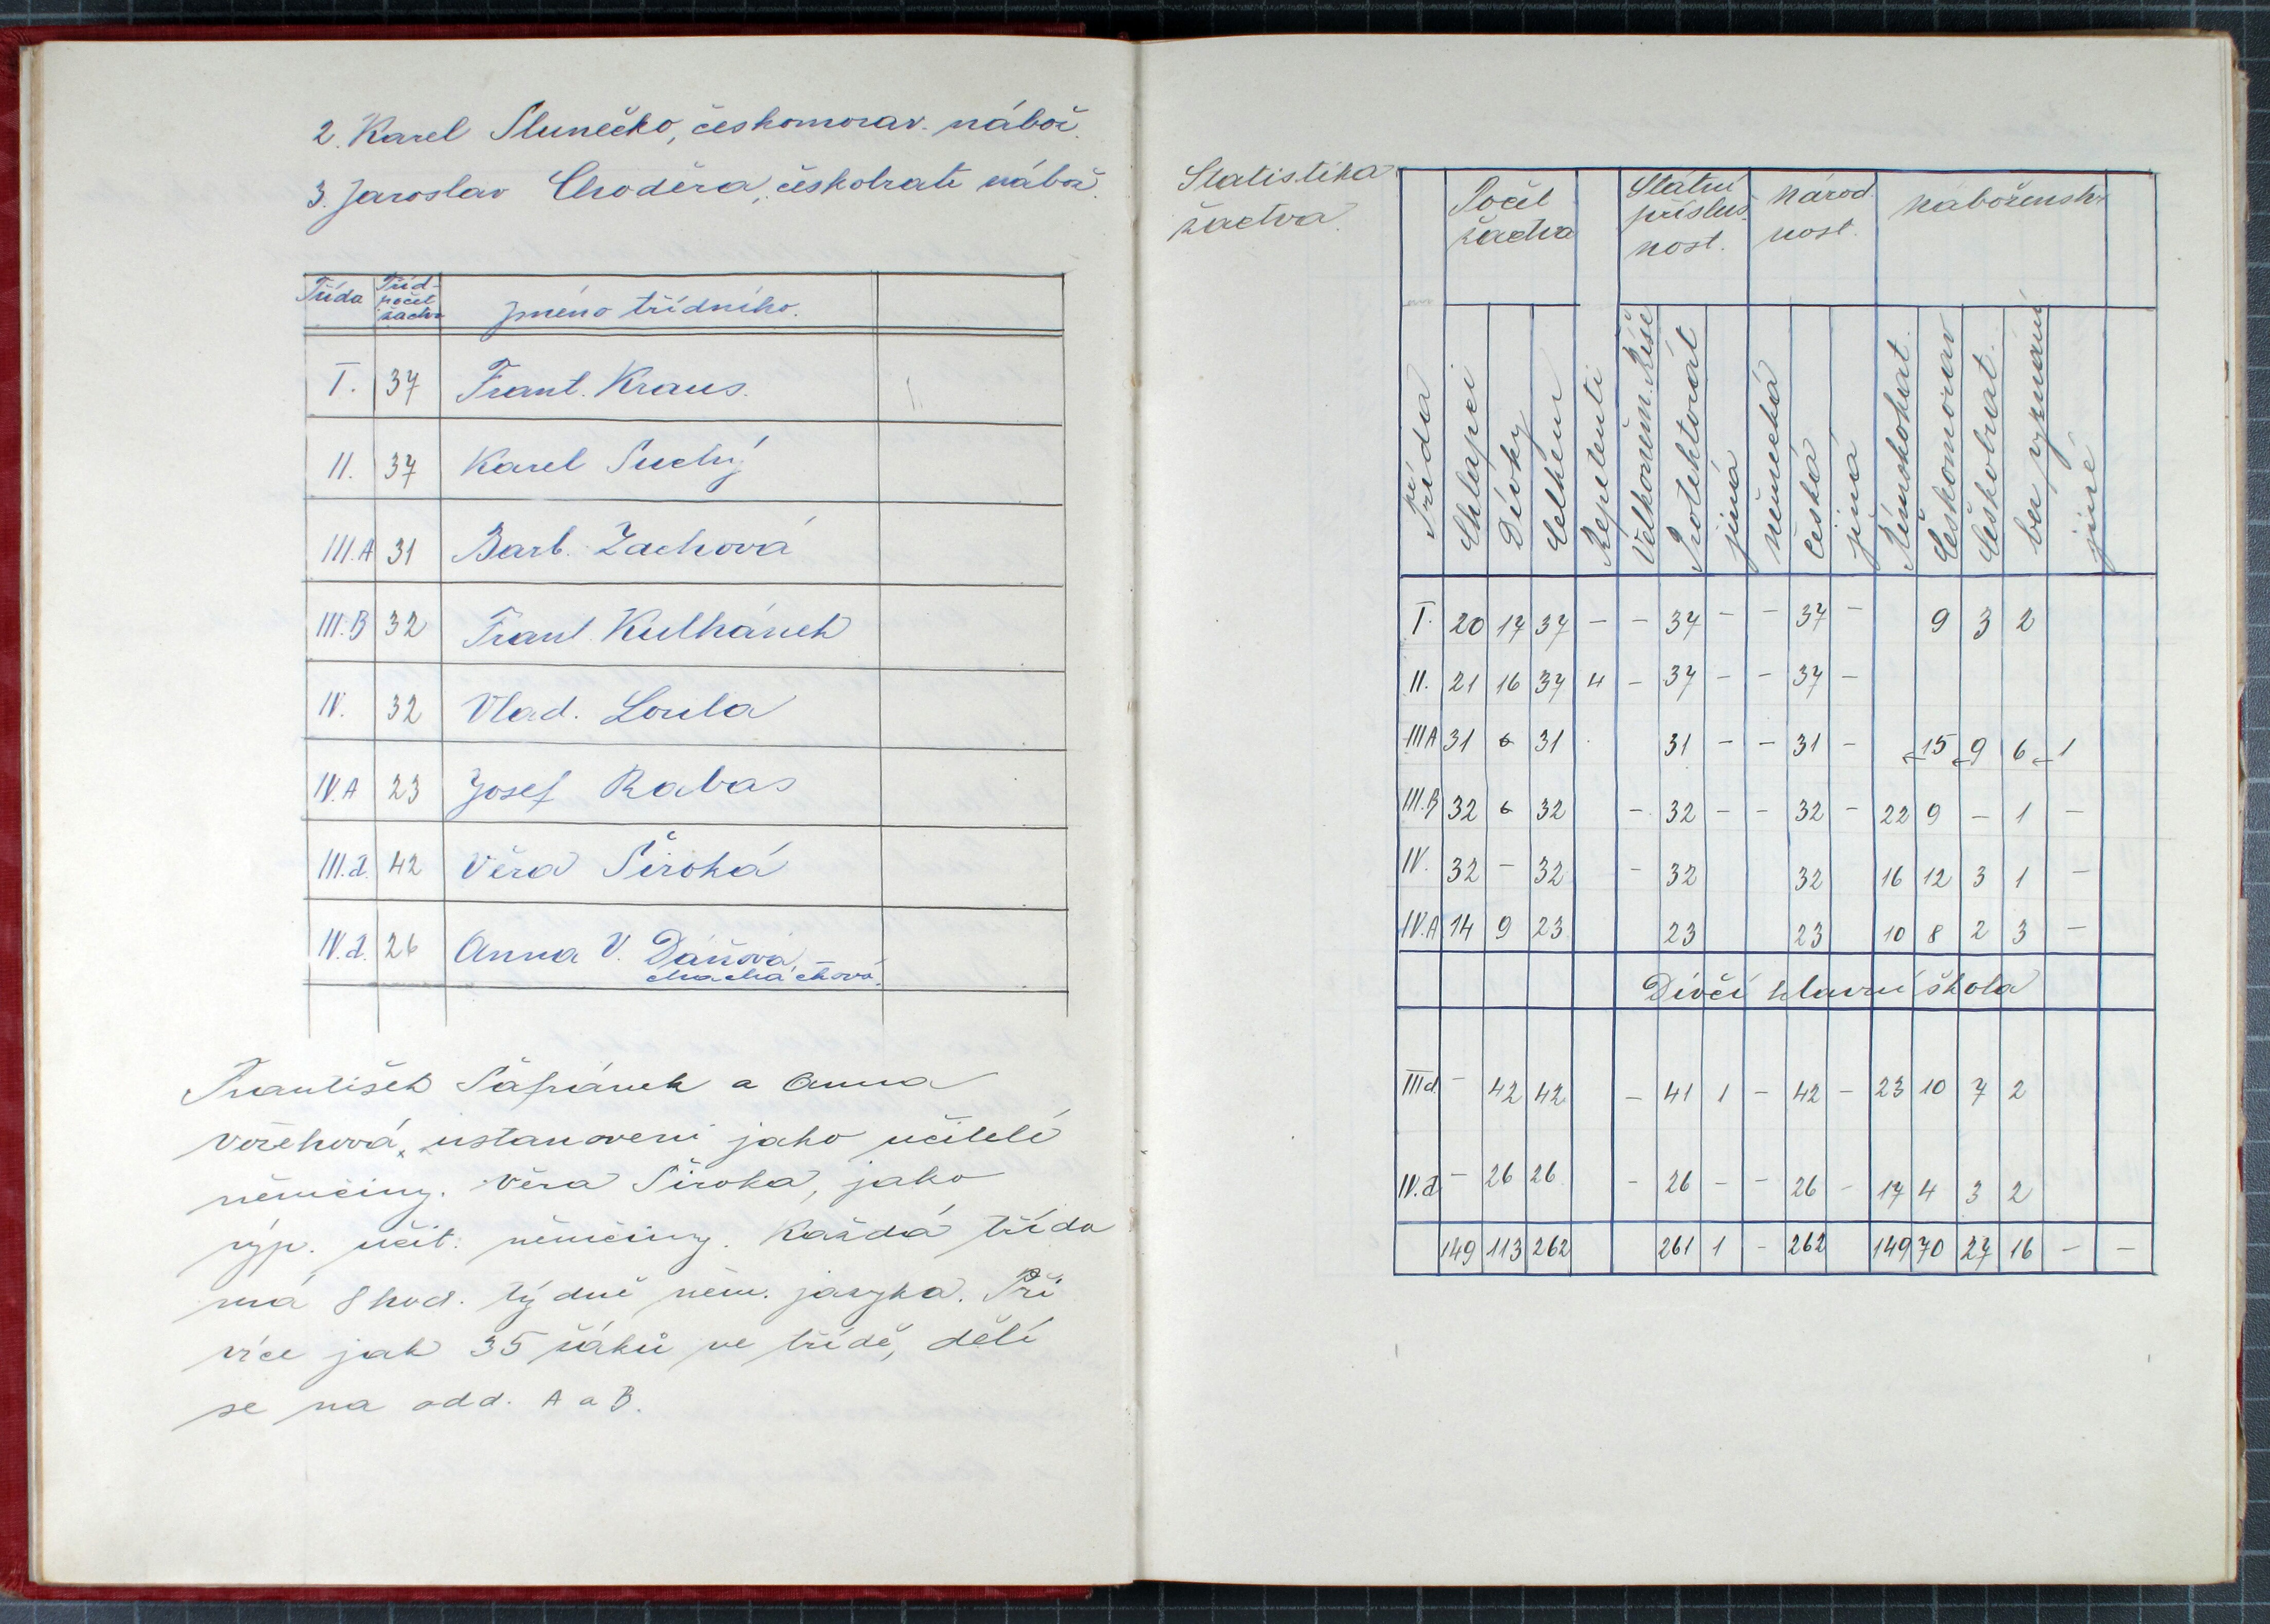 2. Karel Slunečko, českomorav. nábož.
3. Jaroslav Choděra, českobratr. nábož.
Třída Tříd- počet žactva Jméno třídního.
I. 37 Frant. Kraus.
II. 37 Karel Suchý
III.A 31 Barb. Zachová
III.B 32 Frant. Kulhánek
IV. 32 Vlad. Loula
IV.A 23 Josef Rabas
III.d. 42 Věra Široká
IV.d. 26 Anna V. Dáňová
Macháčková.
František Šafránek a Anna
Vořehová, ustanoveni jako učitelé
němčiny. Věra Široká, jako
výp. učit. němčiny. Každá třída
má 8 hod. týdně něm. jazyka. Při
více jak 35 žáků ve třídě, dělí
se na odd. A a B.
Statistika
žactva.
Počet žactva Státní přísluš- nost. národ- nost. náboženstv
Třída Chlapci Dívky Celkem Repetenti Velkoněm. Říše Protektorát jiná německá česká jiná Římskokat. Českomorav Českobrat. bez vyznání jiné
I. 20 17 37 – – 37 – – 37 – 9 3 2
II. 21 16 37 4 – 37 – – 37 –
IIIA 31 6 31 31 – – 31 – 15 9 6 1
III.B 32 6 32 – 32 – – 32 – 22 9 – 1 –
IV. 32 – 32 – 32 32 16 12 3 1 –
IV.A 14 9 23 23 23 10 8 2 3 –
Dívčí hlavní škola
IIId. – 42 42 – 41 1 – 42 – 23 10 7 2
IV.d – 26 26 – 26 – – 26 – 17 4 3 2
149 113 262 261 1 – 262 149 70 27 16 – –